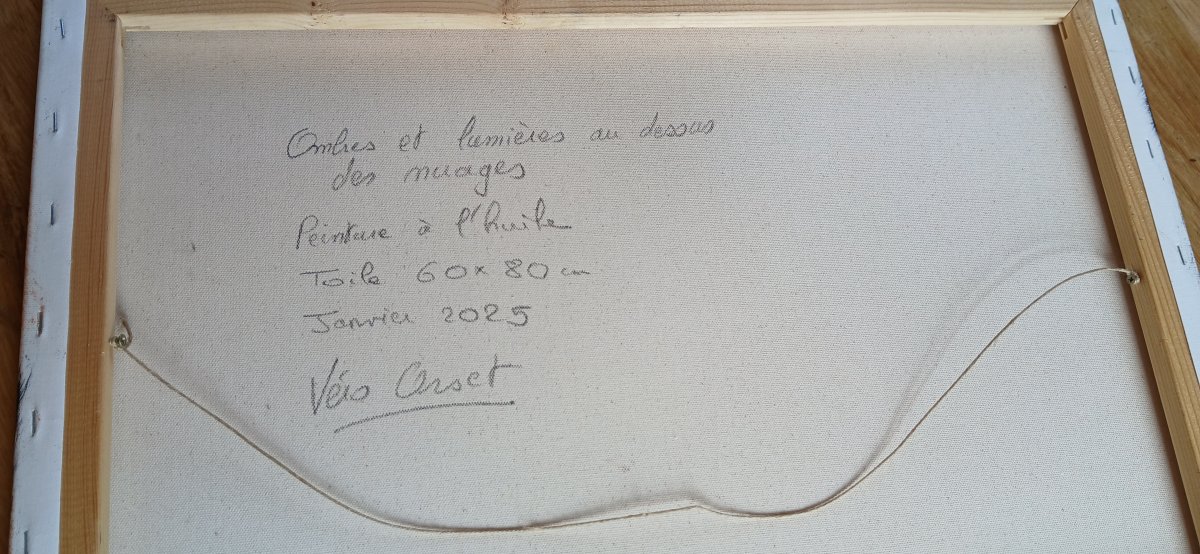 Ombres et lumières au dessus
des nuages
Peinture à l'huile
Toile 60 x 80 cm
Janvier 2025
Véro Orset